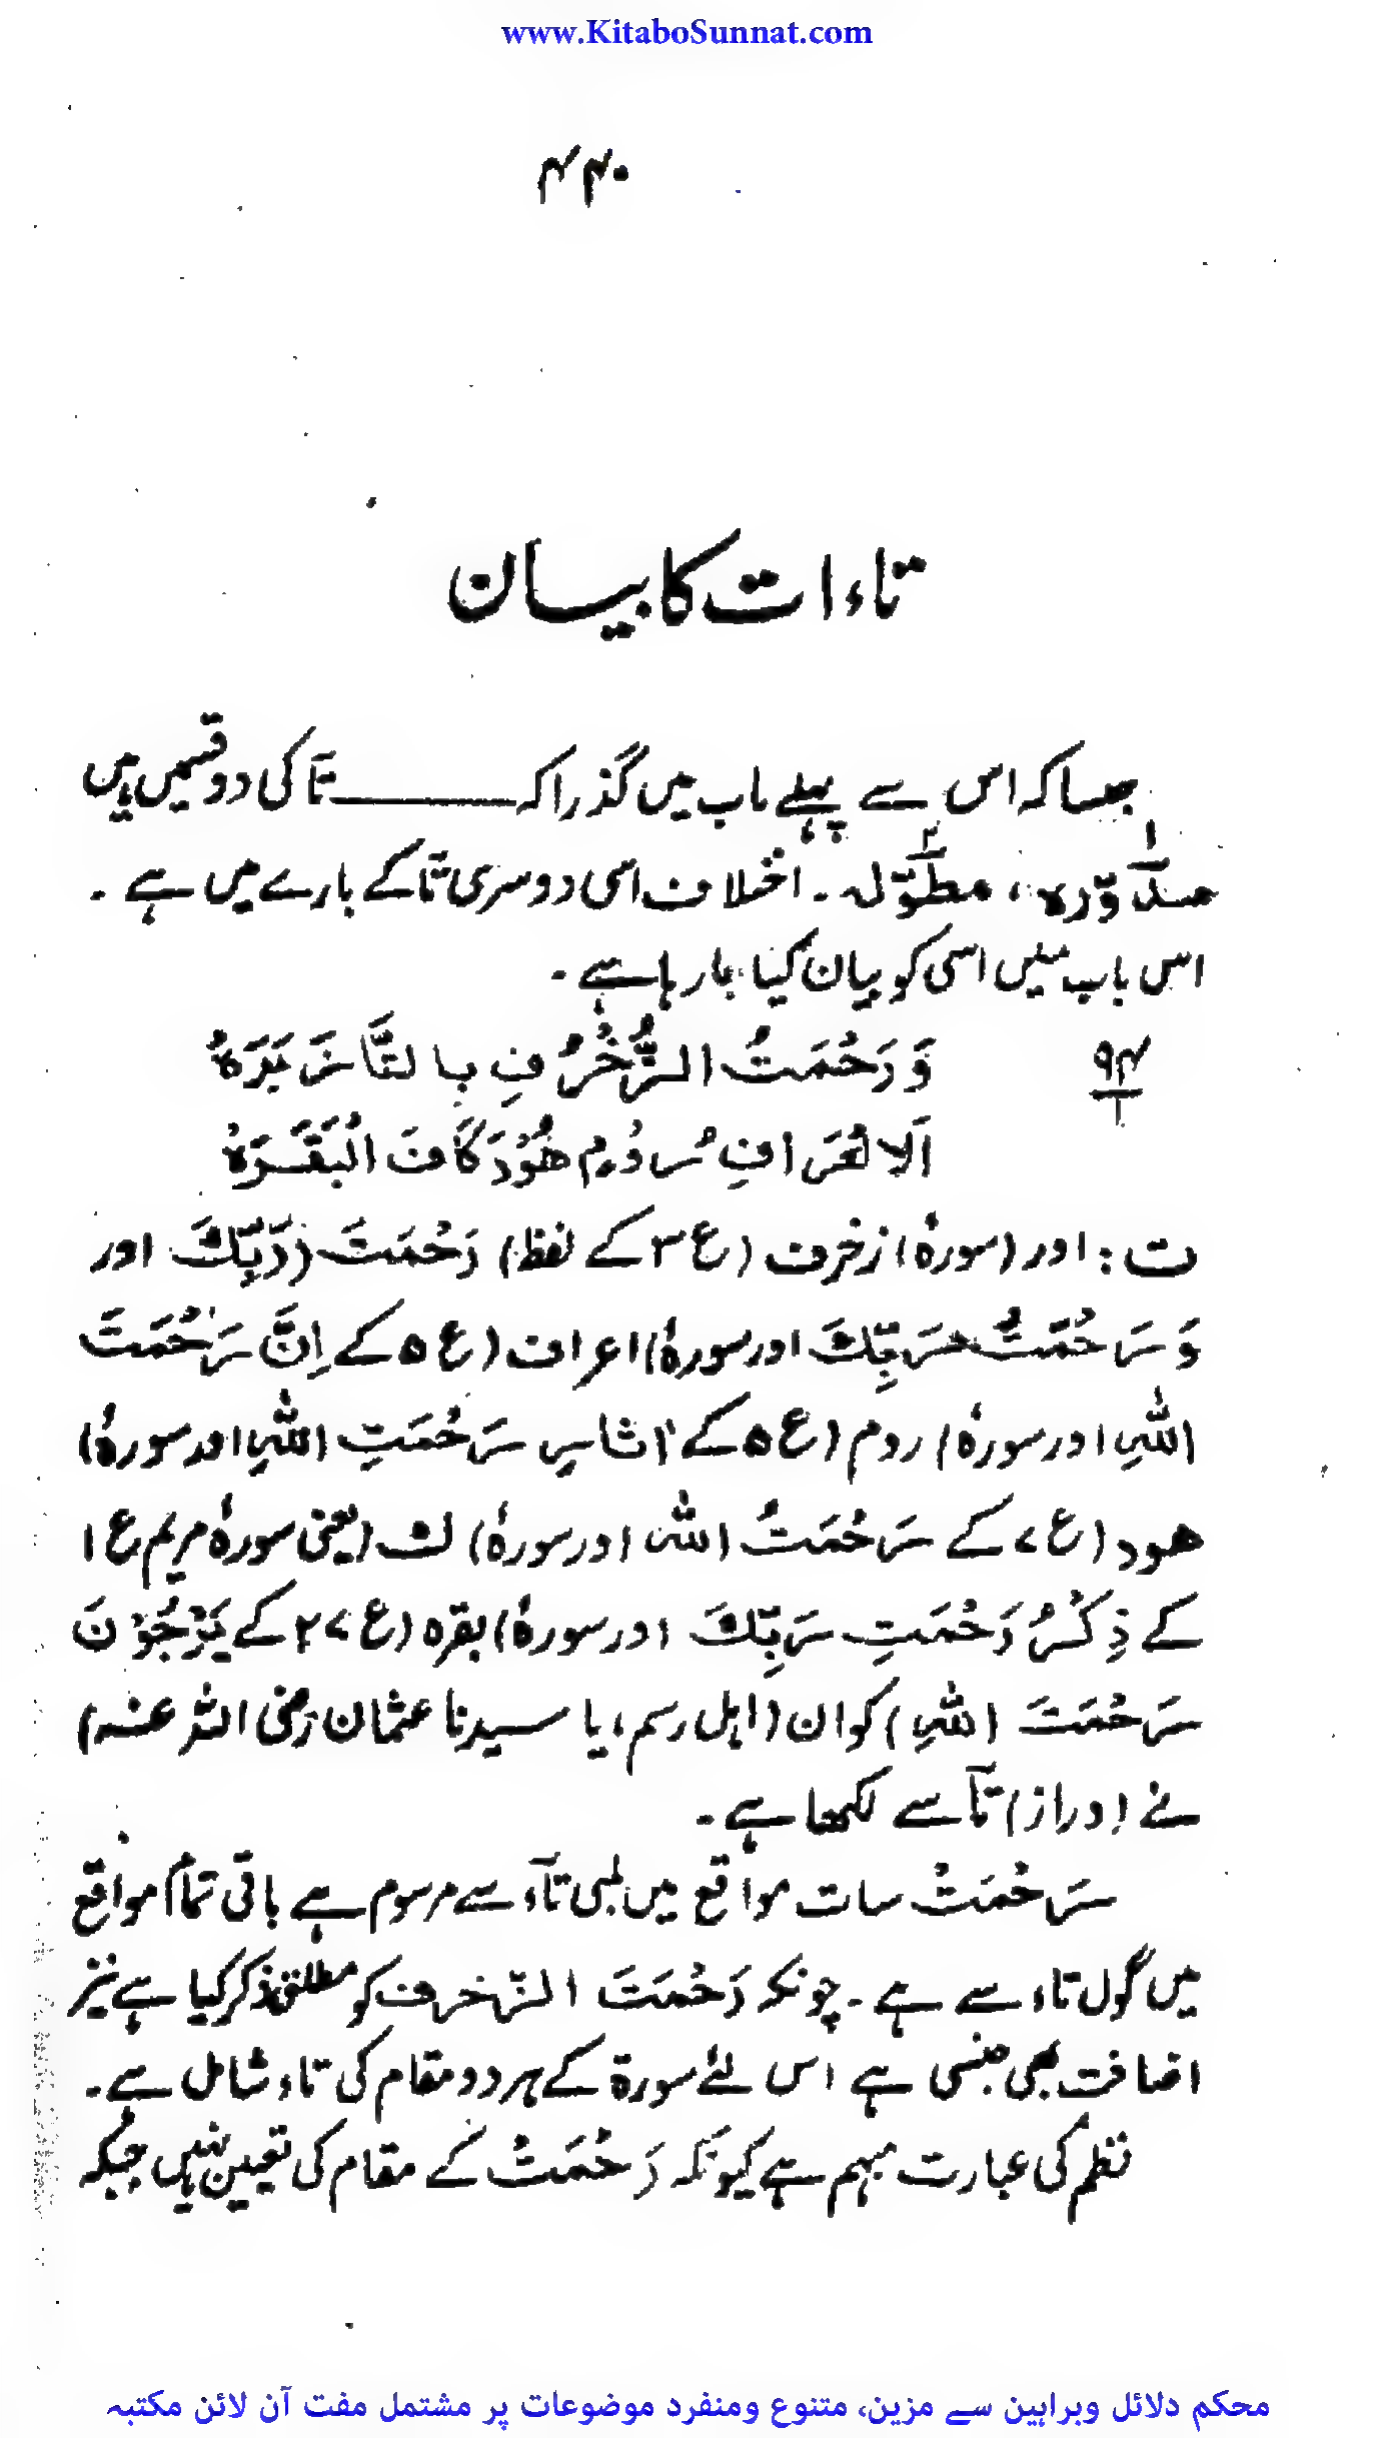 www.KitaboSunnat.com
۴۴۰
تاءات کا بیان
جیسا کہ اس سے پہلے باب میں گذرا کہ ـــــــــ تآ کی دو قسمیں ہیں
۱ مدوّرہ، ۲ مطوّلہ۔ اختلاف اسی دوسری تآ کے بارے میں ہے۔
اس باب میں اسی کو بیان کیا جا رہا ہے۔
۹۴/۱ وَرَحْمَتُ الزُّخْرُفِ بِالتَّا زَبَرَهْ
اَلاعْرَافِ رُوْمٍ هُوْدَ كَافَ الْبَقَرَهْ
ت: اور (سورۂ) زخرف (ع ۳ کے لفظ) رَحْمَتَ (رَبِّكَ اور
وَرَحْمَتُ رَبِّكَ اور سورۂ) اعراف (ع ۵ کے اِنَّ رَحْمَتَ
اللّٰهِ اور سورۂ) روم (ع ۵ کے اٰثَارِ رَحْمَتِ اللّٰهِ اور سورۂ)
ھود (ع ۷ کے رَحْمَتُ اللّٰه اور سورۂ) كٓ (یعنی سورۂ مریم ع ۱
کے ذِكْرُ رَحْمَتِ رَبِّكَ اور سورۂ) بقرہ (ع ۲۷ کے يَرْجُوْنَ
رَحْمَتَ اللّٰهِ) کو ان (اہل رسم، یا سیدنا عثمان رضی اللہ عنہ)
نے (دراز) تآ سے لکھا ہے۔
رَحْمَتْ سات مواقع میں لمبی تآء سے مرسوم ہے باقی تمام مواقع
میں گول تاء سے ہے۔ چونکہ رَحْمَتَ الزّخرف کو مطلق ذکر کیا ہے نیز
اضافت بھی جنسی ہے اس لئے سورۃ کے ہر دو مقام کی تاء شامل ہے۔
نظم کی عبارت مبہم ہے کیونکہ رَحْمَتُ کے مقام کی تعیین نہیں جبکہ
محکم دلائل وبراہین سے مزین، متنوع ومنفرد موضوعات پر مشتمل مفت آن لائن مکتبہ